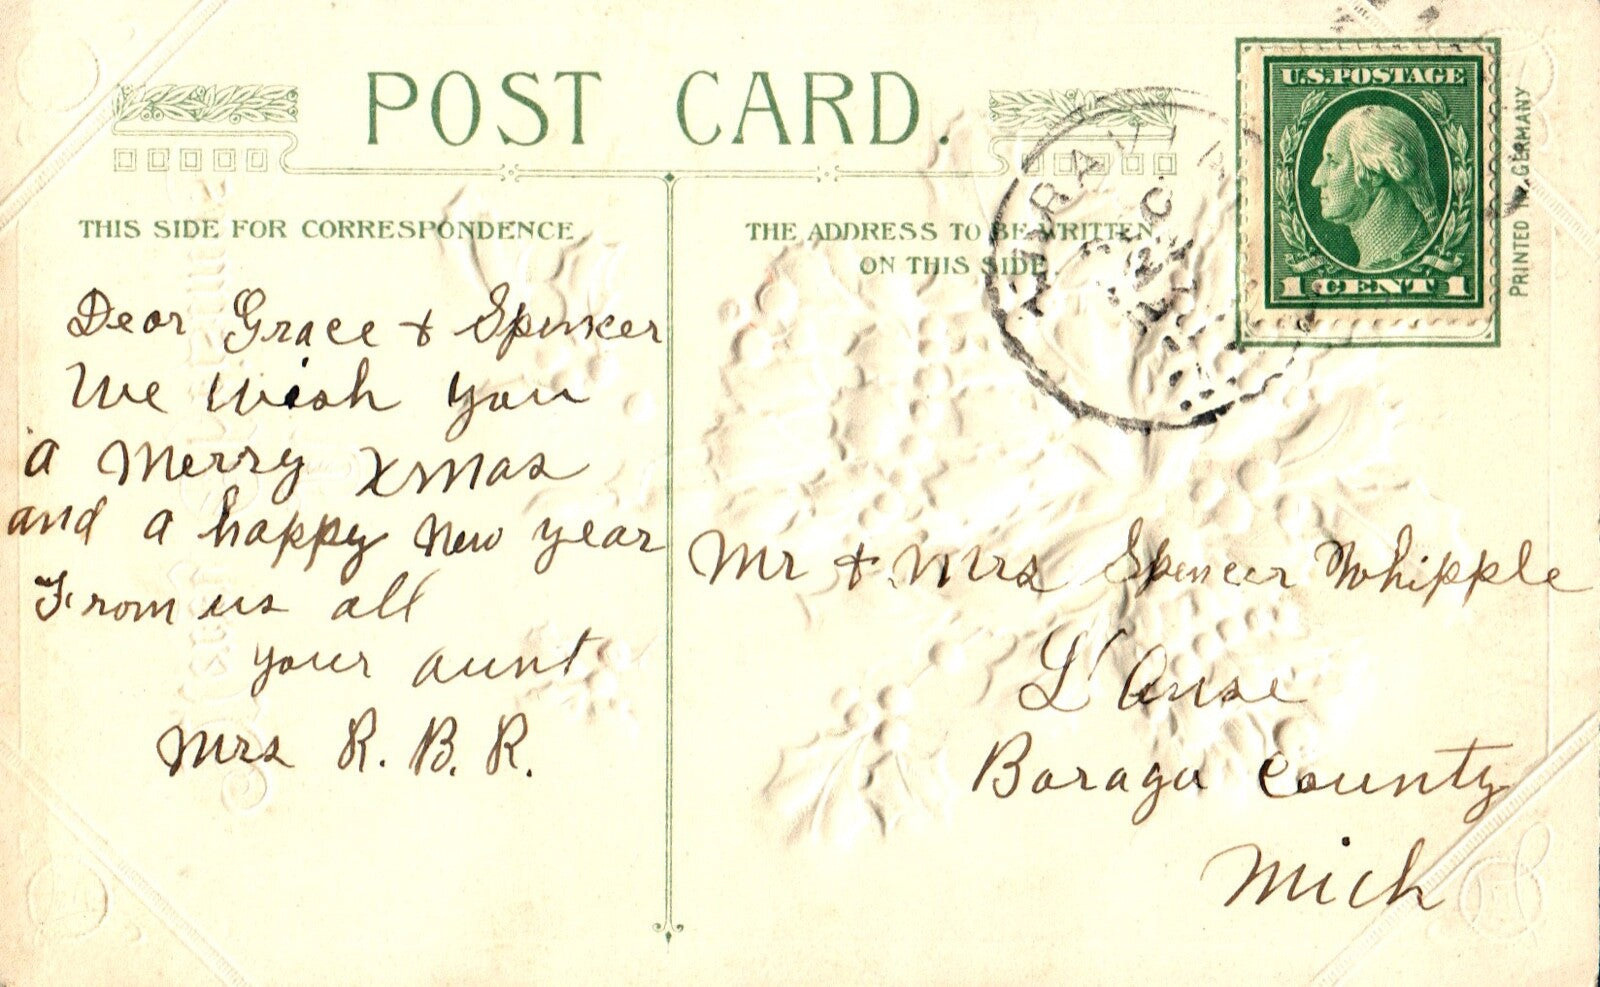 POST CARD.
THIS SIDE FOR CORRESPONDENCE
THE ADDRESS TO BE WRITTEN
ON THIS SIDE.
U.S. POSTAGE
1 CENT 1
PRINTED IN GERMANY
Dear Grace + Spencer
We Wish you
a Merry Xmas
and a happy New year
From us all
your aunt
Mrs R. B. R.
Mr + Mrs Spencer Whipple
L'Anse
Baraga County
Mich